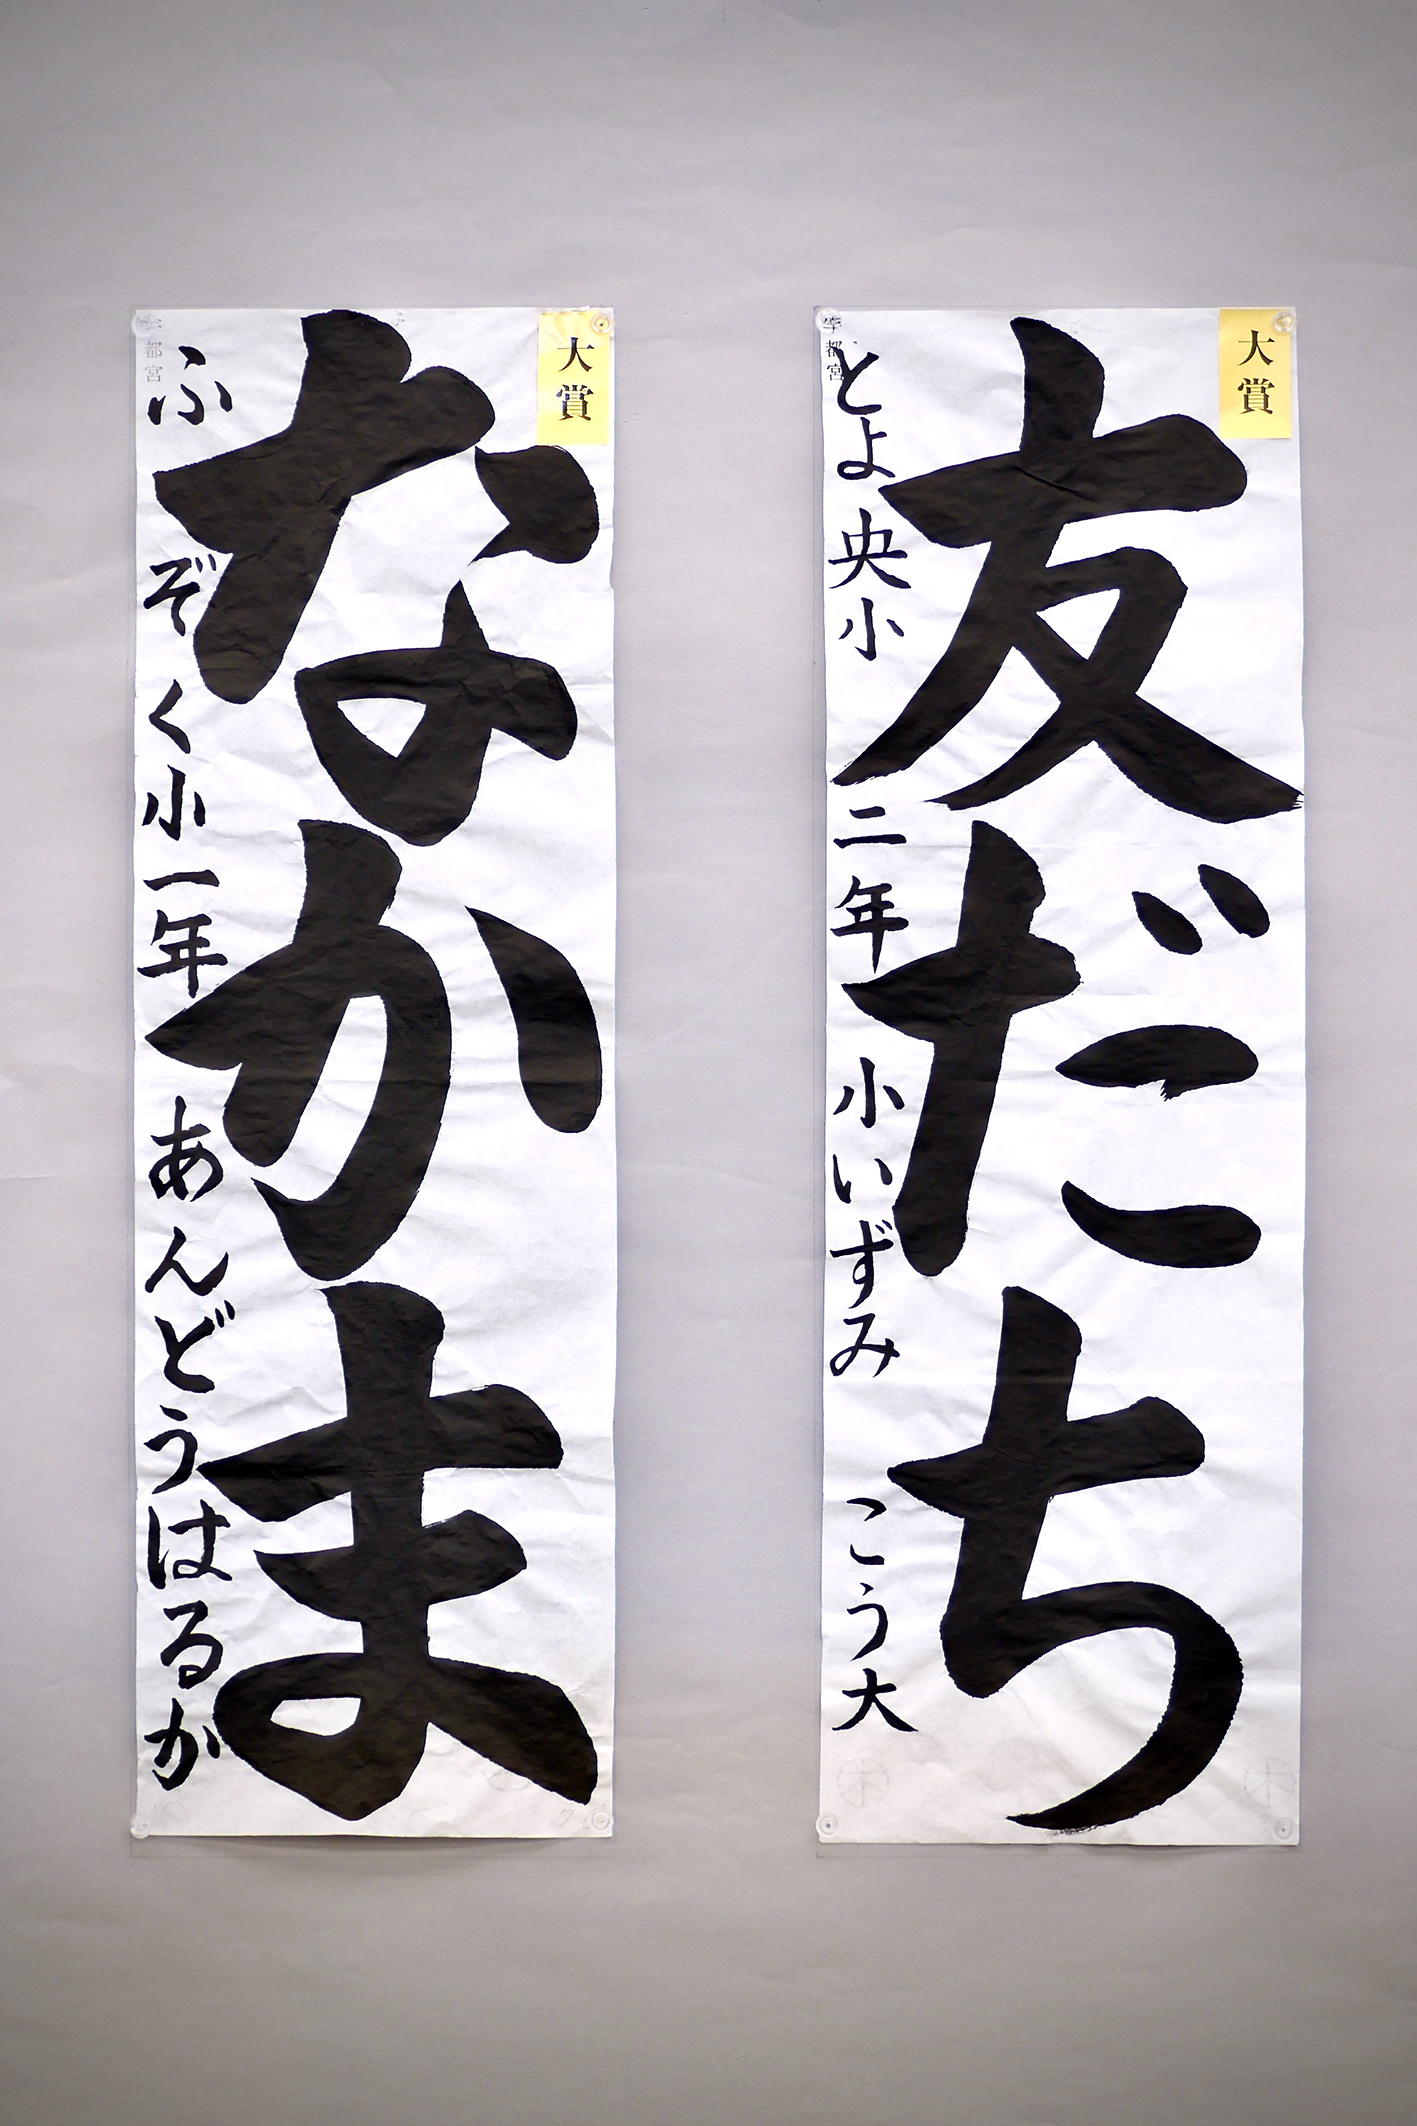 大賞
友だち
宇都宮
とよ央小 二年 小いずみ こう大
大賞
なかま
宇都宮
ふぞく小一年 あんどうはるか